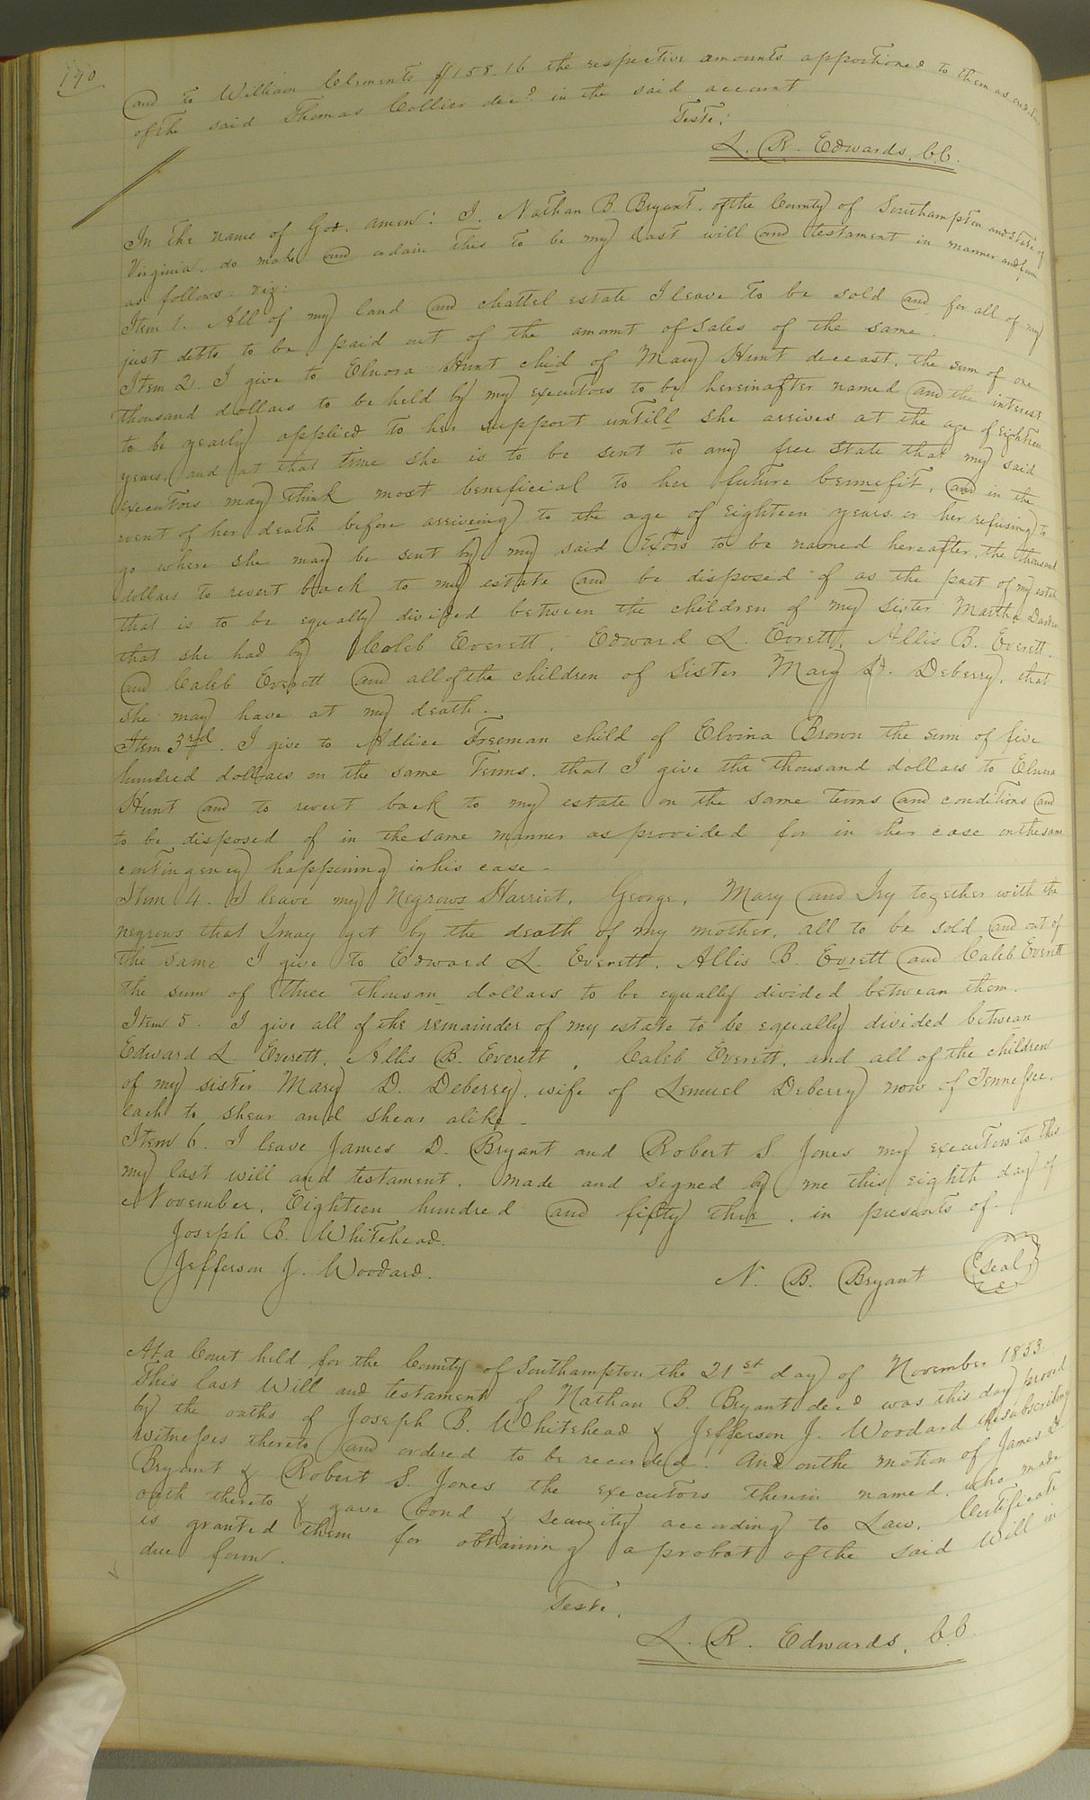 190
and to William Clements $158.16 the respective amounts apportioned to them as creditors
of the said Thomas Collier decd in the said account
Teste:
L. R. Edwards, C.C.
In the name of God. amen: I. Nathan B. Bryant. of the County of Southampton and State of
Virginia. do make and ordain this to be my last will and testament in manner and form
as follows. viz:
Item 1. All of my land and chattel estate I leave to be sold and for all of my
just debts to be paid out of the amomt of sales of the same.
Item 2. I give to Elnora Hunt child of Mary Hunt deceast, the sum of one
thousand dollars to be held by my executors to be hereinafter named and the interest
to be yearly applied to her support untill she arrives at the age of Eighteen
years, and at that time she is to be sent to any free State that my said
executors may think most beneficial to her future bennefit, and in the
event of her death before arriveing to the age of eighteen years or her refusing to
go where she may be sent by my said Exors to be named hereafter, the thousand
dollars to revert back to my estate and be disposed of as the part of my estate
that is to be equally divided between the children of my sister Martha Darden
that she had by Caleb Everett. Edward L. Everett, Allis B. Everett.
and Caleb Everett and all of the children of Sister Mary D. Deberry, that
she may have at my death.
Item 3rd. I give to Adlice Freeman child of Elvina Brown the sum of five
hundred dollars on the same terms. that I give the thousand dollars to Elnora
Hunt and to revert back to my estate on the same terms and conditions and
to be disposed of in the same manner as provided for in her case on the same
contingency happening in his case -
Item 4. I leave my Negrows Harriet, George, Mary and Ivy together with the
negrows that I may get by the death of my mother, all to be sold and out of
the same I give to Edward L. Everett, Allis B. Everett and Caleb Everett
the sum of three thousan dollars to be equally divided between them.
Item 5. I give all of the remainder of my estate to be equally divided between
Edward L Everett, Allis B. Everett, Caleb Everett, and all of the children
of my sister Mary D. Deberry, wife of Lemuel Deberry now of Tennessee.
each to shear and shear alike.
Item 6. I leave James D. Bryant and Robert S. Jones my executors to this
my last will and testament. Made and signed by me this eighth day of
November, Eighteen hundred and fifty three. in presents of.
Joseph B. Whitehead.
Jefferson J. Woodard.
N. B. Bryant (seal)
At a Court held for the County of Southampton the 21st day of November 1853.
This last Will and testament of Nathan B. Bryant decd was this day proved
by the oaths of Joseph B. Whitehead & Jefferson J. Woodard the subscribing
witnesses thereto and ordered to be recorded. And on the motion of James D.
Bryant & Robert S. Jones the executors therein named, who made
oath thereto & gave bond & security according to Law. Certificate
is granted them for obtaining a probat of the said Will in
due form.
Teste,
L. R. Edwards, C.C.